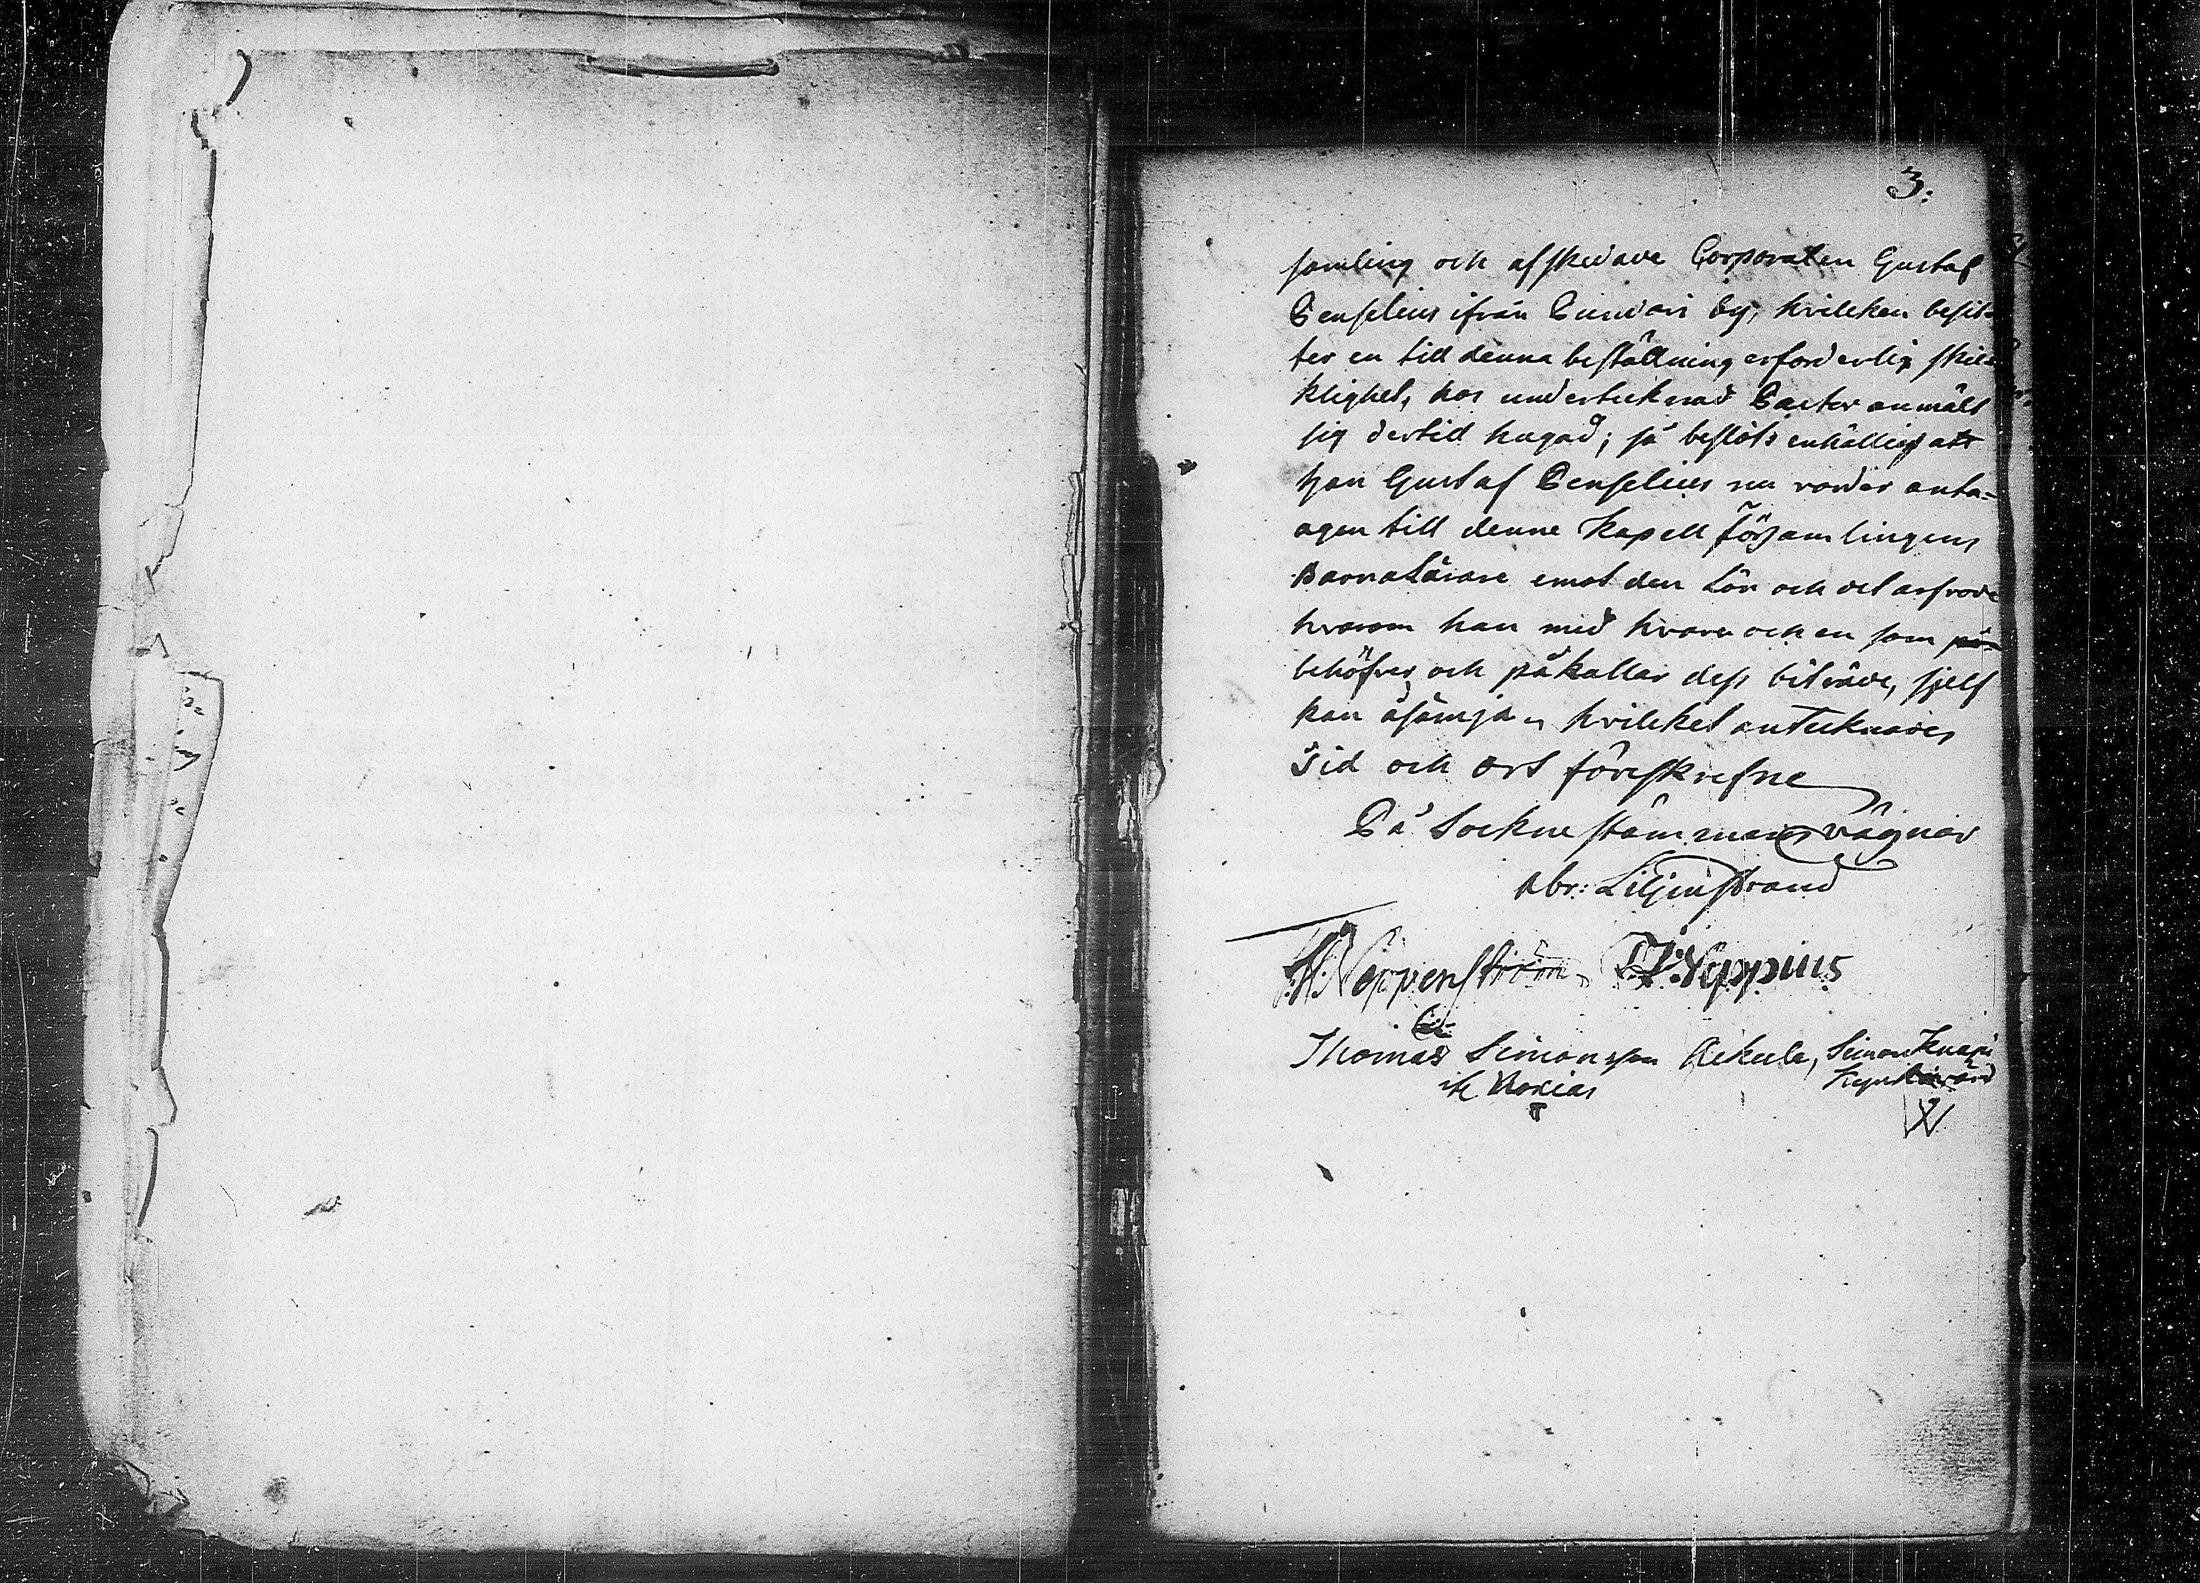 3:
samling och afskedade Corporalen Gustaf
Penselius ifrån by, hvilcken besit-
ter en till denna beställning erforderlig skic-
klighet, hos undertecknad Pastor anmält
sig dertill hugad; så beslöts enhälligt att
han Gustaf Penselius nu varder anta-
agen till denne Kapell församlingens
BarnaLärare emot den Lön och det arfvode
hvarom han med hvar och en som på-
behöfver och påkallar dess biträde, sjelf
kan åsämja, hvilcket antecknades
Tid och Ort föreskrefne
På Sockne stämmans vägnar
Abr: Liljenstrand
Neppenström Yppius
Thomas Simonsson Simon Knapi